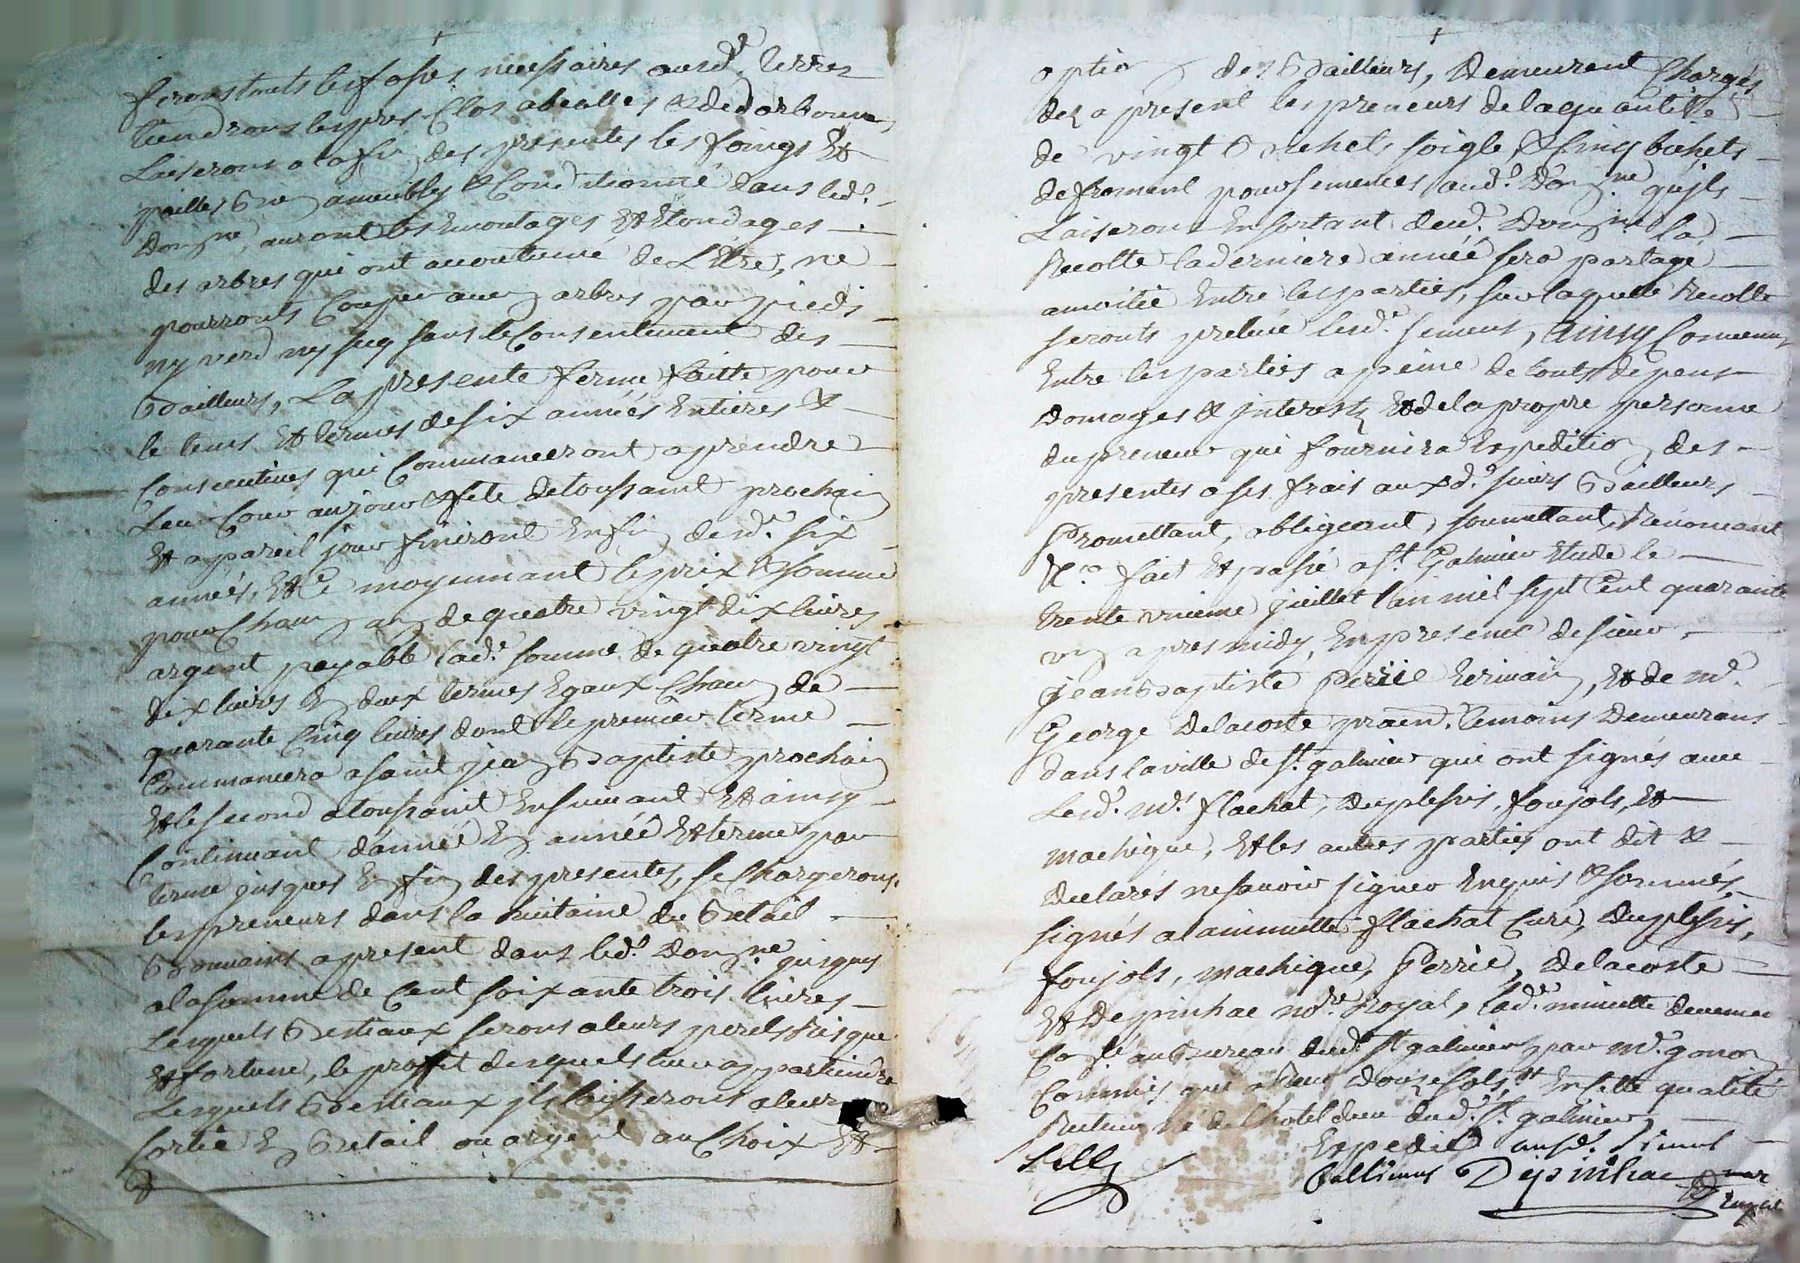 feront touts les fossés necessaires ausd. terres
tiendront les prés Clos abeallés & de
Laiseront a la fin des presentes les foings Et
pailles Bien ameublés & Conditionné dans led.
Domne, auront les Emontages Et Etondages
des arbres qui ont accoutumé de L'Etre, ne
pourront Couper aucun arbres par pieds
ny verd ny seq sans le Consentement des
Bailleurs, La presente ferme faitte pour
le tems Et termes de six années Entieres &
Consecutives qui Commanceront a prendre
Leur Cour au jour & fete de toussaint prochain
Et a pareil jour finiront Enfin desd. six
années, Et Ce moyennant le prix & somme
pour Chaun an de quatre vingt dix livres
argent payable lad. somme de quatre vingt
dix livres En deux termes Egaux Chaun de
quarante Cinq livres dont le premier terme
Commancera a saint jean Baptiste prochain
Et le second a toussaint Ensuivant Et ainsy
Continuant d'année En année Et terme par
terme jusques En fin des presentes, se Chargeront
les preneurs dans la huitaine du Betail
Bonnains a present dans led. Domne jusques
a la somme de Cent soixante trois livres
Lesquels Bestiaux seront a leurs perils Risque
Et fortune, le profit desquels leur appartiendra
Lesquels Bestiaux ils laisseront a leur
sortie En Betail ou argent au Choix Et
option des Bailleurs, Demeurent Chargés
dez a present les preneurs de la quantitté
de vingt Bichets soigle & Cinq bichets
de froment pour semences aud. Domne qu'ils
Laiseront En sortant dud. Domne la
Recolte la derniere année sera partagé
a moitié Entre les parties, sur laquelle Recolte
seronts prelevé lesd. semens, ainsy Convenu
Entre les parties a peine de touts depens
Domages & interests Et de la propre personne
du preneur qui fournira Expedition des
presentes a ses frais auxd. sieurs Bailleurs
Promettant, obligeant, soumettant, Renoncant
&a fait Et passé a St. Galmier Etude le
trente unieme juillet l'an mil sept Cent quarante
un apres midy, En presence de sieur
jean Baptiste Perrie Ecrivain, Et de mr.
George Delacoste praen. temoins Demeurans
dans la ville de St. galmier qui ont signés avec
Lesd. mrs. flachat, duplessis, foujols, Et
machique, Et les autres parties ont dit &
declarés ne savoir signer Enquis & sommés
signés a la minutte flachat Curé, Duplessis,
foujols, machique, Perrie, Delacoste
Et Depinhac nore. Royal, lad. minutte
Conle au Bureau dud. St. galmier par mr. gonon
Commis qui a Douze sols, Et En sette qualité
de l'hotel dieu dud. St. galmier
Expedié ausd. sieurs
Depinhac